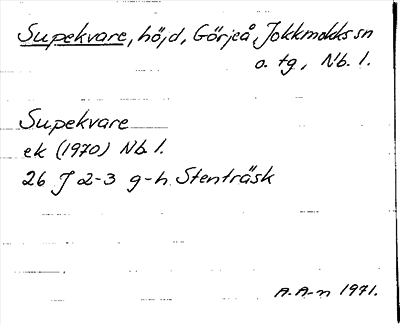 Supekvare, höjd, Görjeå, Jokkmokks sn
o. tg, Nb. l.
Supekvare
ek (1970) Nb l.
26 J 2-3 g-h Stenträsk
A.A-n 1971.